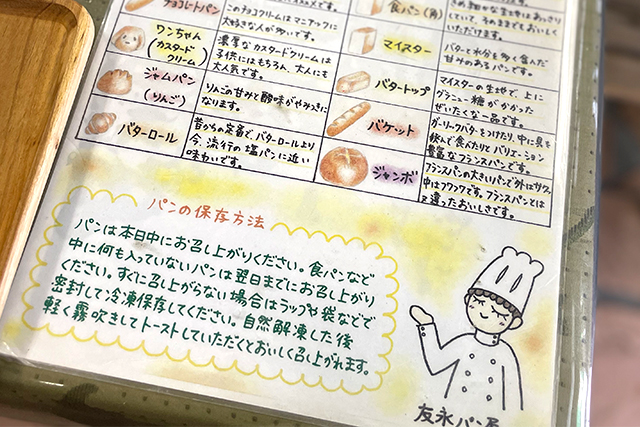 チョコレートパン
このチョコクリームはマニアックに
大好きな人が多いです。
ワンちゃん
(カスタード
クリーム)
濃厚なカスタードクリームは
子供にはもちろん、大人にも
大人気です。
ジャムパン
(りんご)
りんごの甘みと酸味がやみつきに
なります。
バターロール
昔からの定番で、バターロールより
今、流行の塩パンに近い
味わいです。
食パン(角)
していて、そのままでもおいしく
いただけます。
マイスター
バターと水分を多く含んだ
甘みのあるパンです。
バタートップ
マイスターの生地で、上に
グラニュー糖がかかった
ぜいたくな一品です。
バケット
ガーリックバターをつけたり、中に具を
挟んで食べたりとバリエーション
豊富なフランスパンです。
ジャンボ
フランスパンの大きいパンで外はサクッ、
中はフワフワです。フランスパンとは
又違ったおいしさです。
パンの保存方法
パンは本日中にお召し上がりください。食パンなど
中に何も入っていないパンは翌日までにお召し上がり
ください。すぐに召し上がらない場合はラップや袋などで
密封して冷凍保存してください。自然解凍した後
軽く霧吹きしてトーストしていただくとおいしく召し上がれます。
友永パン屋